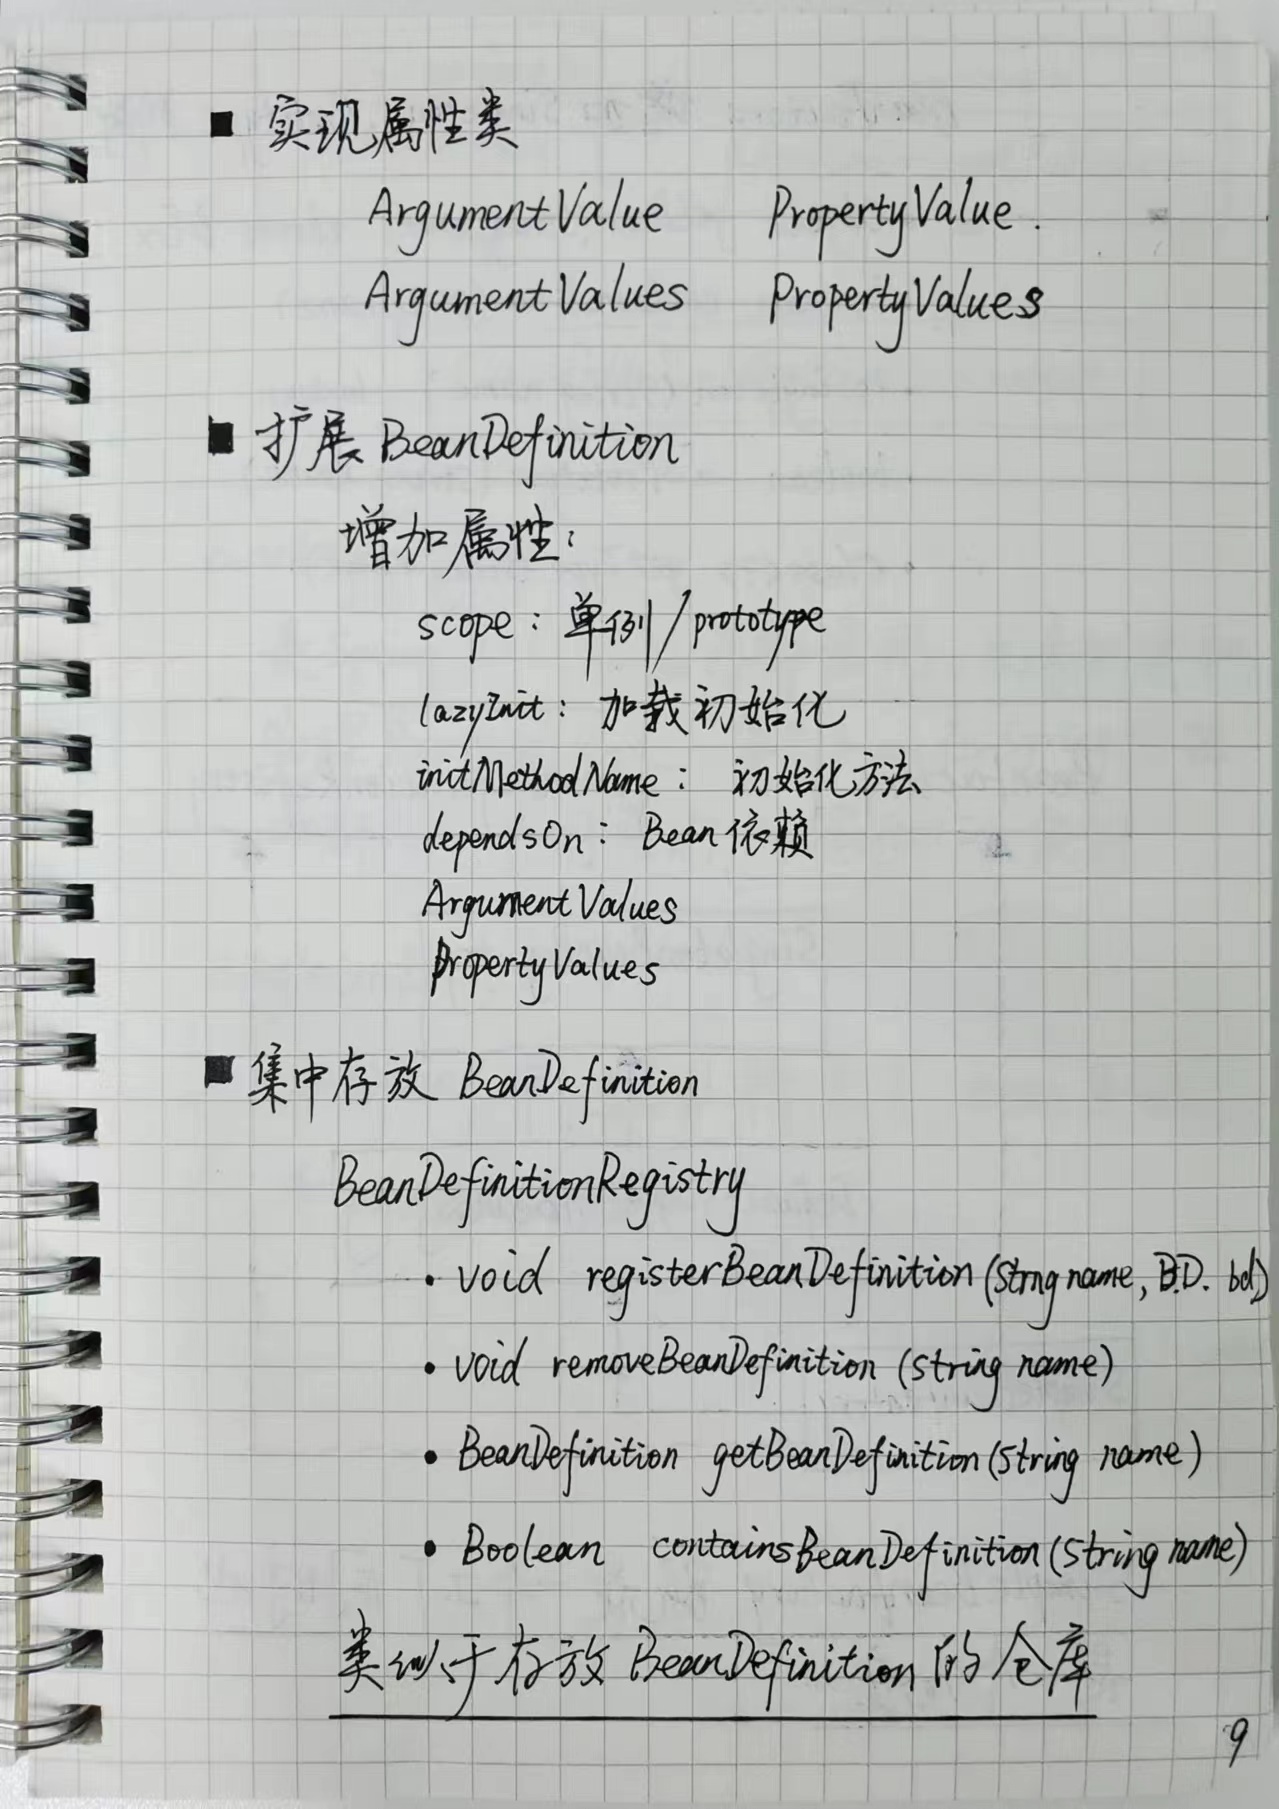 ■ 实现属性类
ArgumentValue PropertyValue.
ArgumentValues PropertyValues
■ 扩展 BeanDefinition
增加属性:
scope: 单例/prototype
lazyInit: 加载初始化
initMethodName: 初始化方法
dependsOn: Bean依赖
ArgumentValues
PropertyValues
■ 集中存放 BeanDefinition
BeanDefinitionRegistry
• void registerBeanDefinition(String name, B.D. bd)
• void removeBeanDefinition (String name)
• BeanDefinition getBeanDefinition(String name)
• Boolean containsBeanDefinition(String name)
类似于存放 BeanDefinition 的仓库
9